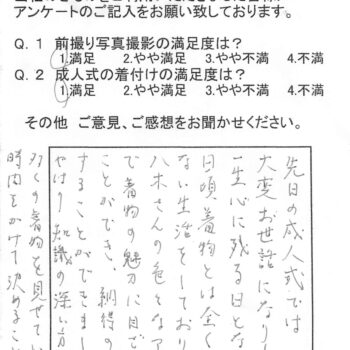 アンケートのご記入をお願い致しております。
Q.１ 前撮り写真撮影の満足度は？
1.満足 2.やや満足 3.やや不満 4.不満
Q.２ 成人式の着付けの満足度は？
1.満足 2.やや満足 3.やや不満 4.不満
その他 ご意見、ご感想をお聞かせください。
先日の成人式では
大変お世話になりま
一生心に残る日とな
日頃着物とは全く
ない生活をしており
八木さんの色々なア
で着物の魅力に目で
ことができ、納得の
することができまし
やはり知識の深い方
多くの着物を見せてい
時間をかけて決めるこ